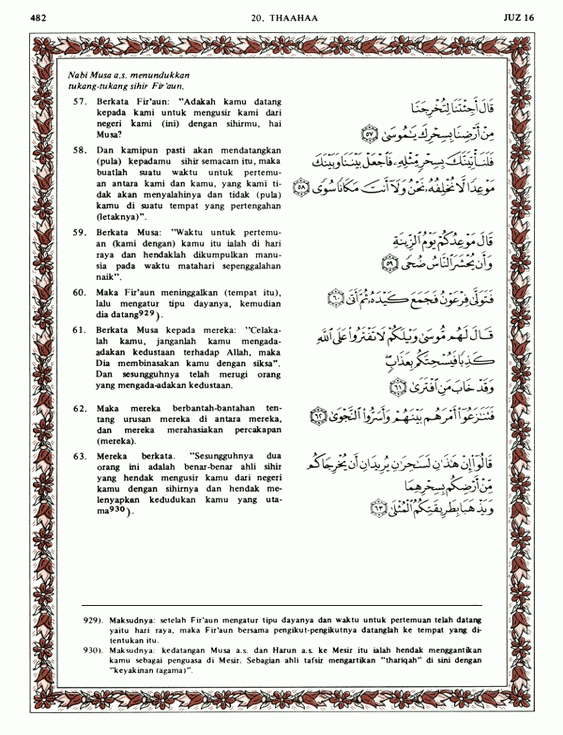 482 20. THAAHAA JUZ 16
Nabi Musa a.s. menundukkan
tukang-tukang sihir Fir'aun.
57. Berkata Fir'aun: "Adakah kamu datang
kepada kami untuk mengusir kami dari
negeri kami (ini) dengan sihirmu, hai
Musa?
قَالَ أَجِئْتَنَا لِتُخْرِجَنَا
مِنْ أَرْضِنَا بِسِحْرِكَ يَٰمُوسَىٰ ﴿٥٧﴾
58. Dan kamipun pasti akan mendatangkan
(pula) kepadamu sihir semacam itu, maka
buatlah suatu waktu untuk pertemu-
an antara kami dan kamu, yang kami ti-
dak akan menyalahinya dan tidak (pula)
kamu di suatu tempat yang pertengahan
(letaknya)".
فَلَنَأْتِيَنَّكَ بِسِحْرٍ مِّثْلِهِۦ فَٱجْعَلْ بَيْنَنَا وَبَيْنَكَ
مَوْعِدًا لَّا نُخْلِفُهُۥ نَحْنُ وَلَآ أَنتَ مَكَانًا سُوًى ﴿٥٨﴾
59. Berkata Musa: "Waktu untuk pertemu-
an (kami dengan) kamu itu ialah di hari
raya dan hendaklah dikumpulkan manu-
sia pada waktu matahari sepenggalahan
naik".
قَالَ مَوْعِدُكُمْ يَوْمُ ٱلزِّينَةِ
وَأَن يُحْشَرَ ٱلنَّاسُ ضُحًى ﴿٥٩﴾
60. Maka Fir'aun meninggalkan (tempat itu),
lalu mengatur tipu dayanya, kemudian
dia datang929).
فَتَوَلَّىٰ فِرْعَوْنُ فَجَمَعَ كَيْدَهُۥ ثُمَّ أَتَىٰ ﴿٦٠﴾
61. Berkata Musa kepada mereka: "Celaka-
lah kamu, janganlah kamu mengada-
adakan kedustaan terhadap Allah, maka
Dia membinasakan kamu dengan siksa".
Dan sesungguhnya telah merugi orang
yang mengada-adakan kedustaan.
قَالَ لَهُم مُّوسَىٰ وَيْلَكُمْ لَا تَفْتَرُوا۟ عَلَى ٱللَّهِ
كَذِبًا فَيُسْحِتَكُم بِعَذَابٍ
وَقَدْ خَابَ مَنِ ٱفْتَرَىٰ ﴿٦١﴾
62. Maka mereka berbantah-bantahan ten-
tang urusan mereka di antara mereka,
dan mereka merahasiakan percakapan
(mereka).
فَتَنَٰزَعُوٓا۟ أَمْرَهُم بَيْنَهُمْ وَأَسَرُّوا۟ ٱلنَّجْوَىٰ ﴿٦٢﴾
63. Mereka berkata. "Sesungguhnya dua
orang ini adalah benar-benar ahli sihir
yang hendak mengusir kamu dari negeri
kamu dengan sihirnya dan hendak me-
lenyapkan kedudukan kamu yang uta-
ma930).
قَالُوٓا۟ إِنْ هَٰذَٰنِ لَسَٰحِرَٰنِ يُرِيدَانِ أَن يُخْرِجَاكُم
مِّنْ أَرْضِكُم بِسِحْرِهِمَا
وَيَذْهَبَا بِطَرِيقَتِكُمُ ٱلْمُثْلَىٰ ﴿٦٣﴾
929). Maksudnya: setelah Fir'aun mengatur tipu dayanya dan waktu untuk pertemuan telah datang
yaitu hari raya, maka Fir'aun bersama pengikut-pengikutnya datanglah ke tempat yang di-
tentukan itu.
930). Maksudnya: kedatangan Musa a.s. dan Harun a.s. ke Mesir itu ialah hendak menggantikan
kamu sebagai penguasa di Mesir. Sebagian ahli tafsir mengartikan "thariqah" di sini dengan
"keyakinan (agama)".